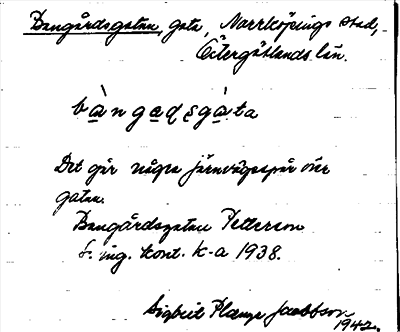 Bangårdsgatan, gata, Norrköpings stad,
Östergötlands län.
bàngaḍṣgàta
Det går några järnvägsspår över
gatan.
Bangårdsgatan Petterson
ing. kont. k-a 1938.
Sigbrit Plænge Jacobson
1942.